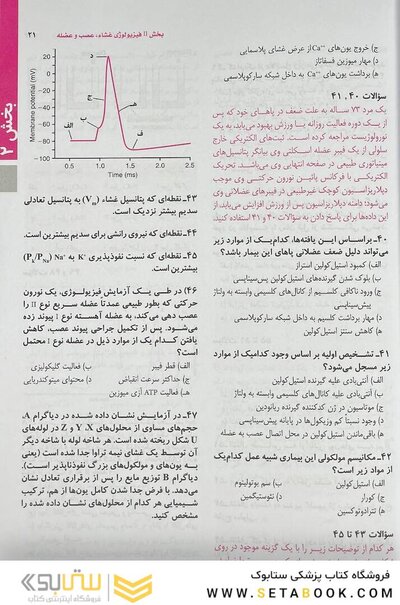 بخش II فیزیولوژی غشاء، عصب و عضله
۲۱
بخش ۲
ج) خروج یون‌های Ca++ از عرض غشای پلاسمایی
د) مهار میوزین فسفاتاز
ه) برداشت یون‌های Ca++ به داخل شبکه سارکوپلاسمی
سؤالات ۴۰، ۴۱
یک مرد ۷۳ ساله به علت ضعف در پاهای خود که پس
از یک دوره فعالیت روزانه یا ورزش بهبود می‌یابد، به یک
نورولوژیست مراجعه کرده است. ثبت‌های الکتریکی خارج
سلولی از یک فیبر عضله اسکلتی وی بیانگر پتانسیل‌های
مینیاتوری طبیعی در صفحه انتهایی وی می‌باشد. تحریک
الکتریکی با فرکانس پائین نورون حرکتی وی موجب
دپلاریزاسیون کوچک غیرطبیعی در فیبرهای عضلانی وی
می‌شود؛ دامنه دپلاریزاسیون پس از ورزش افزایش می‌یابد. از
این داده‌ها برای پاسخ دادن به سؤالات ۴۰ و ۴۱ استفاده کنید.
۴۰ـ براساس این یافته‌ها، کدام‌یک از موارد زیر
می‌تواند دلیل ضعف عضلانی پاهای این بیمار باشد؟
الف) کمبود استیل‌کولین استراز
ب) بلوک شدن گیرنده‌های استیل‌کولین پس‌سیناپسی
ج) ورود ناکافی کلسیم از کانال‌های کلسیمی وابسته به ولتاژ
پیش‌سیناپسی
د) مهار برداشت کلسیم به داخل شبکه سارکوپلاسمی
ه) کاهش سنتز استیل‌کولین
۴۱ـ تشخیص اولیه بر اساس وجود کدامیک از موارد
زیر مسجل می‌شود؟
الف) آنتی‌بادی علیه گیرنده استیل‌کولین
ب) آنتی‌بادی علیه کانال‌های کلسیمی وابسته به ولتاژ
ج) موتاسیون در ژن کدکننده گیرنده ریانودین
د) وجود نسبتاً کم وزیکول‌ها در پایانه پیش‌سیناپسی
ه) باقی‌ماندن استیل‌کولین در محل اتصال عصب به عضله
۴۲ـ مکانیسم مولکولی این بیماری شبیه عمل کدام‌یک
از مواد زیر است؟
الف) استیل‌کولین
ب) سم بوتولینوم
ج) کورار
د) نئوستیگمین
ه) تترادوتوکسین
سؤالات ۴۳ تا ۴۵
هر کدام از توضیحات زیر را با یک گزینه موجود در روی
Membrane potential (mV)
20
0
−20
−40
−60
−80
−100
0.5
1.0
1.5
2.0
2.5
Time (ms)
الف
ب
ج
د
ه
ف
۴۳ـ نقطه‌ای که پتانسیل غشاء (Vm) به پتانسیل تعادلی
سدیم بیشتر نزدیک است.
۴۴ـ نقطه‌ای که نیروی رانشی برای سدیم بیشترین است.
۴۵ـ نقطه‌ای که نسبت نفوذپذیری K+ به Na+ (PK/PNa)
بیشترین است.
۴۶) در طی یک آزمایش فیزیولوژی، یک نورون
حرکتی که بطور طبیعی عمدتاً عضله سریع نوع II را
عصب دهی می‌کند، به عضله آهسته نوع I پیوند زده
می‌شود. پس از تکمیل جراحی پیوند عصب، کاهش
یافتن کدام یک از موارد ذیل در عضله نوع I محتمل
است؟
الف) قطر فیبر
ب) فعالیت گلیکولیزی
ج) حداکثر سرعت انقباض
د) محتوای میتوکندریایی
ه) فعالیت ATP آزی میوزین
۴۷ـ در آزمایش نشان داده شده در دیاگرام A،
حجم‌های مساوی از محلول‌های X، Y و Z در لوله‌های
U شکل ریخته شده است. هر شاخه لوله با شاخه دیگر
آن توسط یک غشای نیمه تراوا جدا شده است (یعنی
به یون‌های و مولکول‌های بزرگ نفوذناپذیر است).
دیاگرام B توزیع مایع را پس از برقراری تعادل نشان
می‌دهد. با فرض جدا شدن کامل یون‌ها از هم، ترکیب
شیمیایی هر کدام از محلول‌های نشان داده شده را
مشخص کنید.
فروشگاه کتاب پزشکی ستابوک
WWW.SETABOOK.COM
ستابوک
فروشگاه اینترنتی کتاب